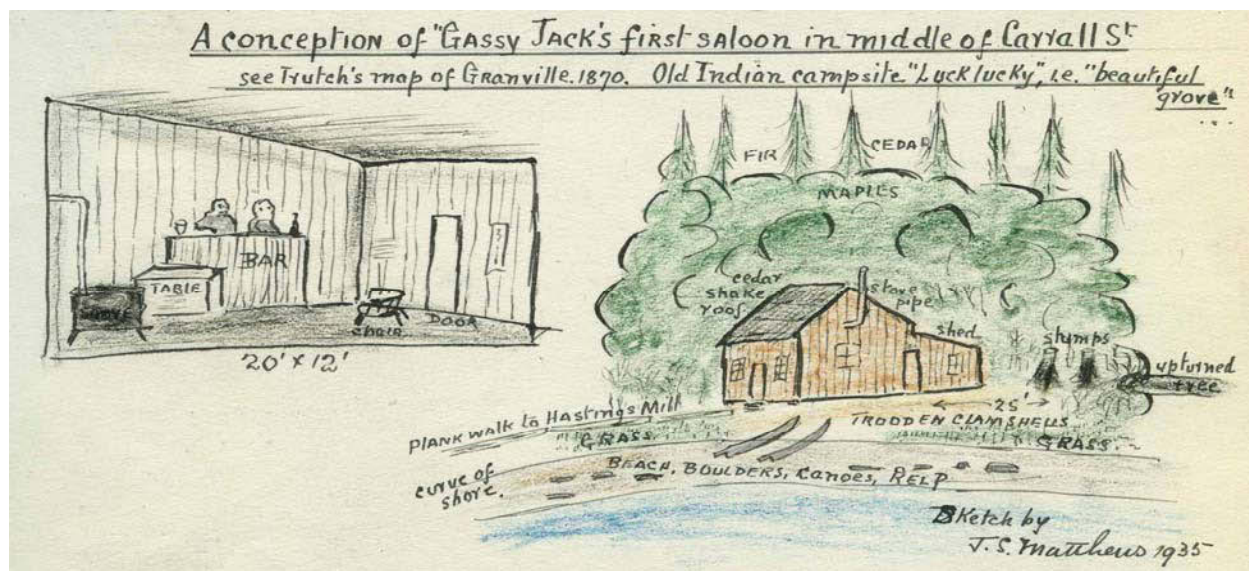 A conception of "Gassy Jack's first saloon in middle of Carrall St
see Trutch's map of Granville. 1870. Old Indian campsite "Lucklucky", i.e. "beautiful
grove"
...
BAR
TABLE
STOVE
CHAIR
DOOR
20' x 12'
FIR
CEDAR
MAPLES
cedar
shake
roof
stove
pipe
shed
stumps
upturned
tree
25'
PLANK WALK to HASTINGS MILL
TRODDEN CLAMSHELLS
GRASS
GRASS
curve of
shore.
BEACH, BOULDERS, Canoes, KELP
Sketch by
J. S. Matthews 1935